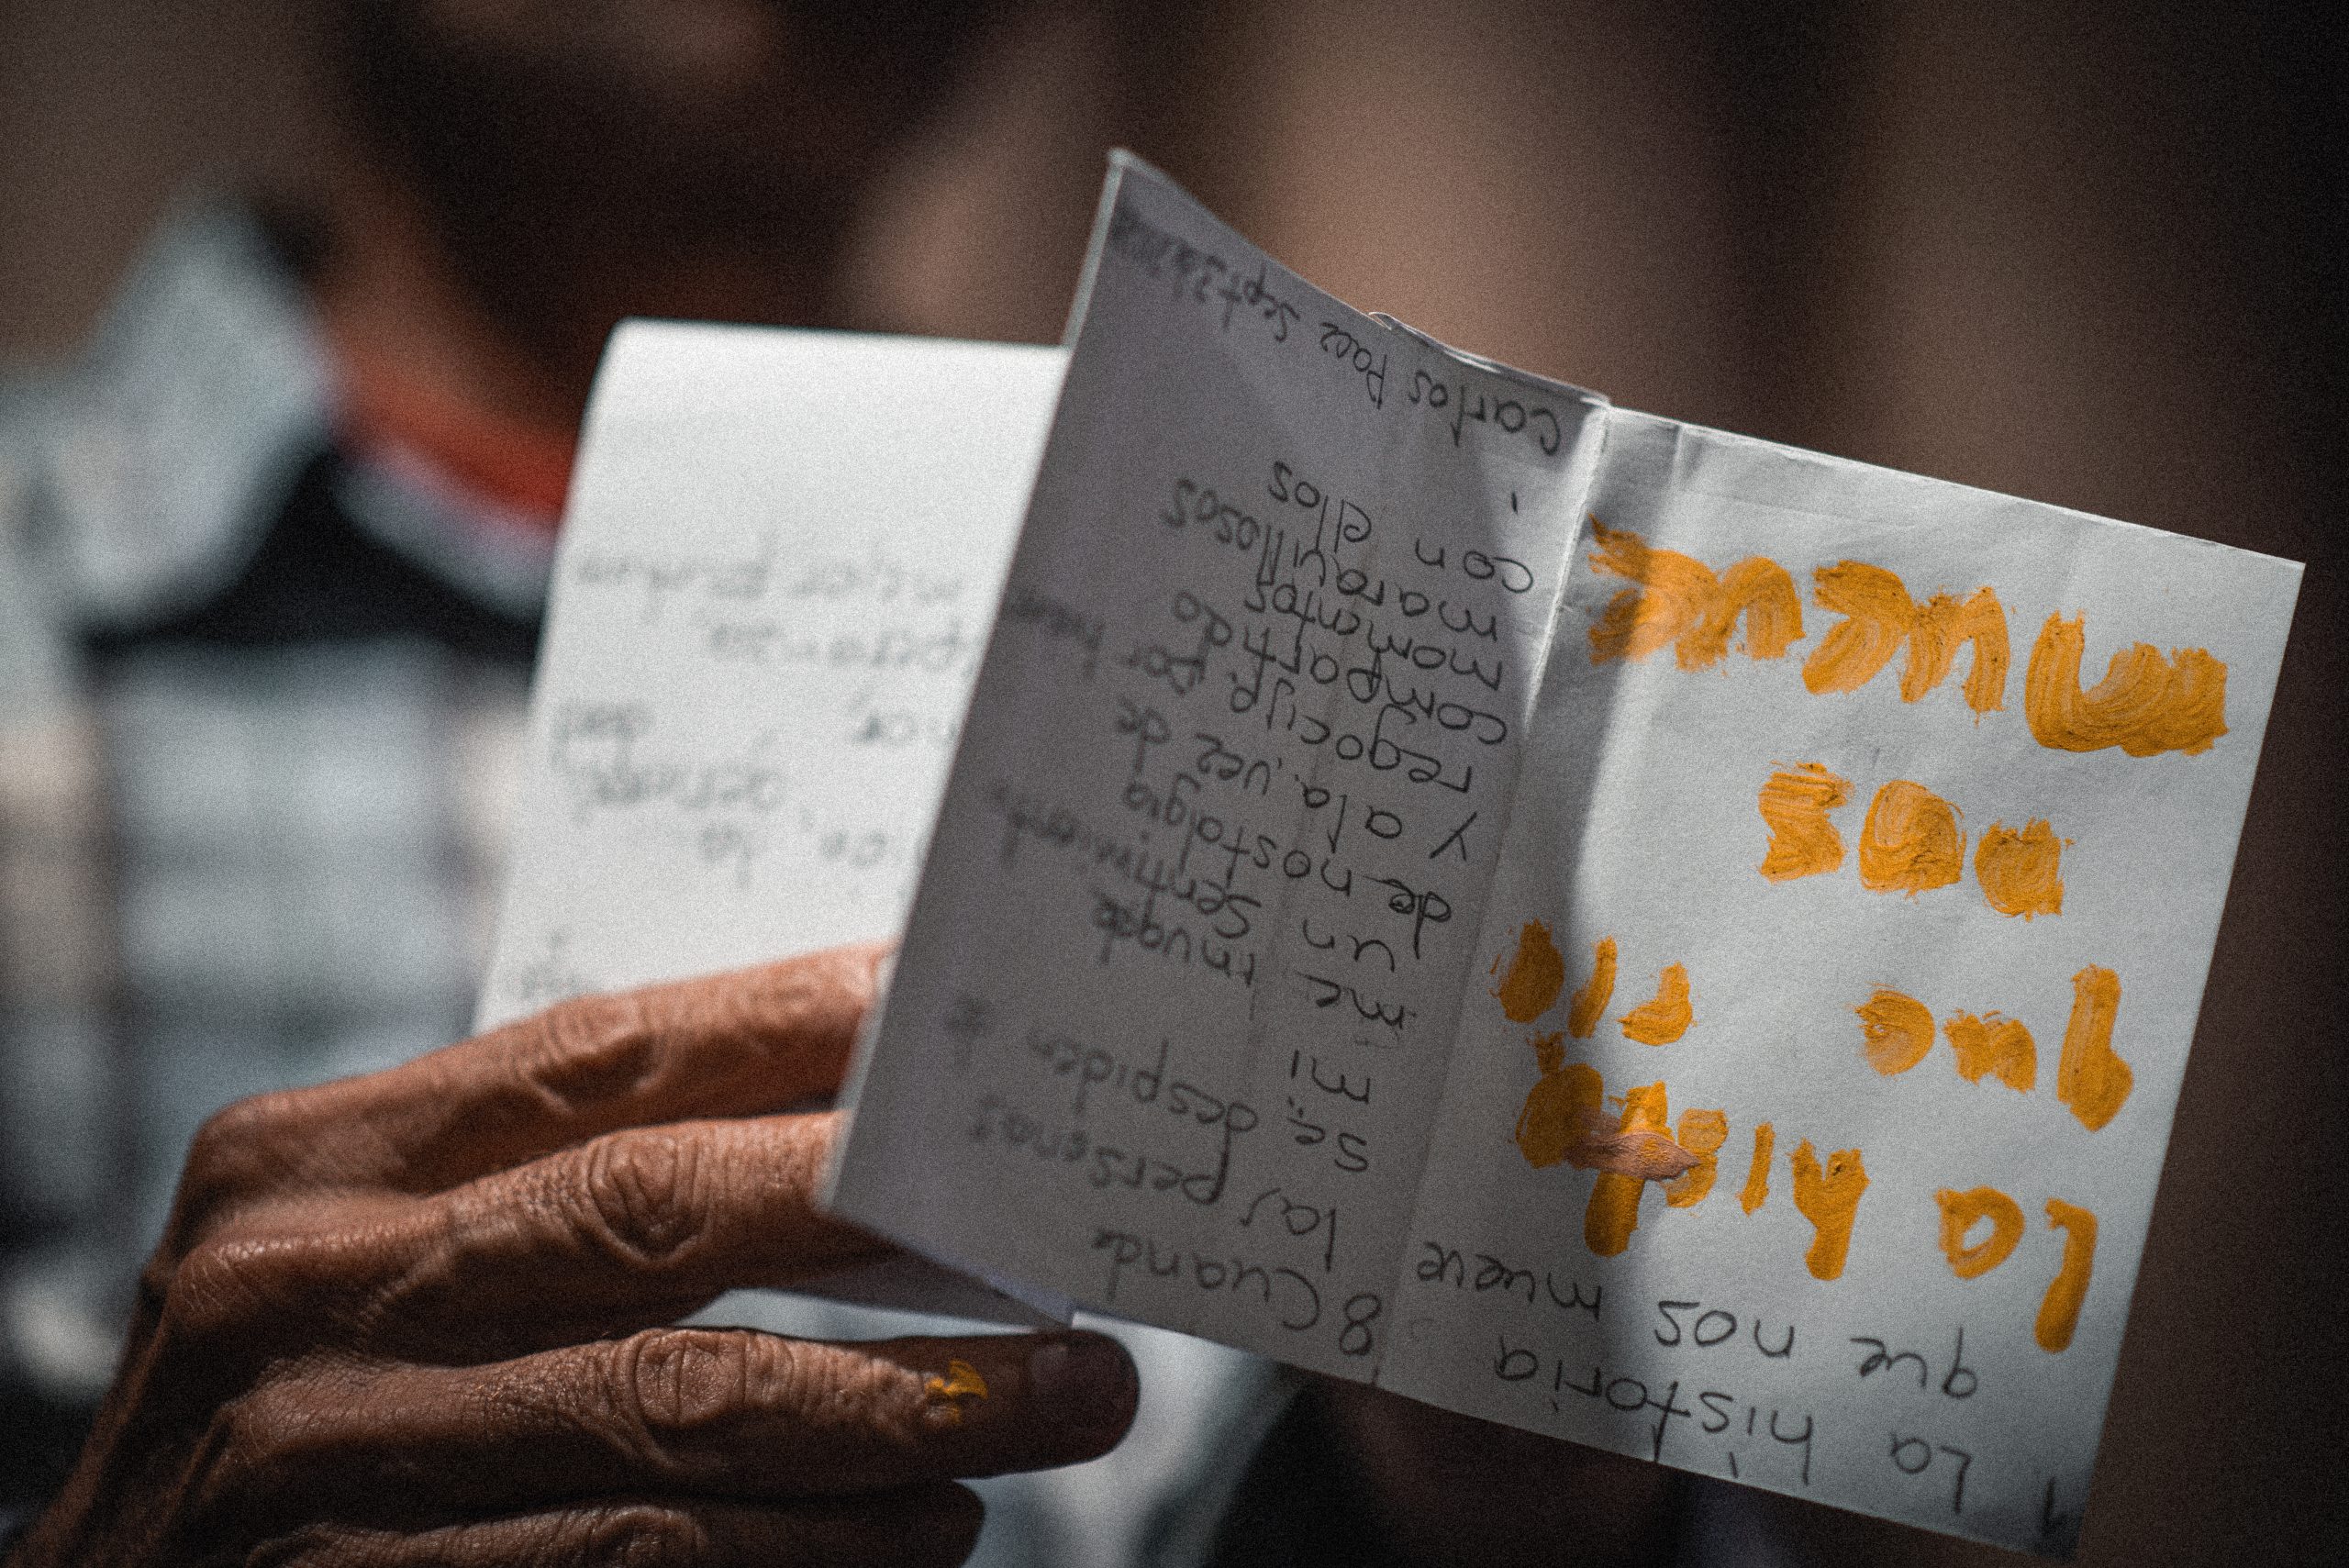 1
La historia
que nos mueve
La histo
que ria
nos
mueve
8 Cuando
las personas
se despiden
mi
me invade
un sentimiento
de nostalgia
y a la vez de
regocijo por haber
compartido
momentos
maravillosos
con ellos
Carlos Paez Sept